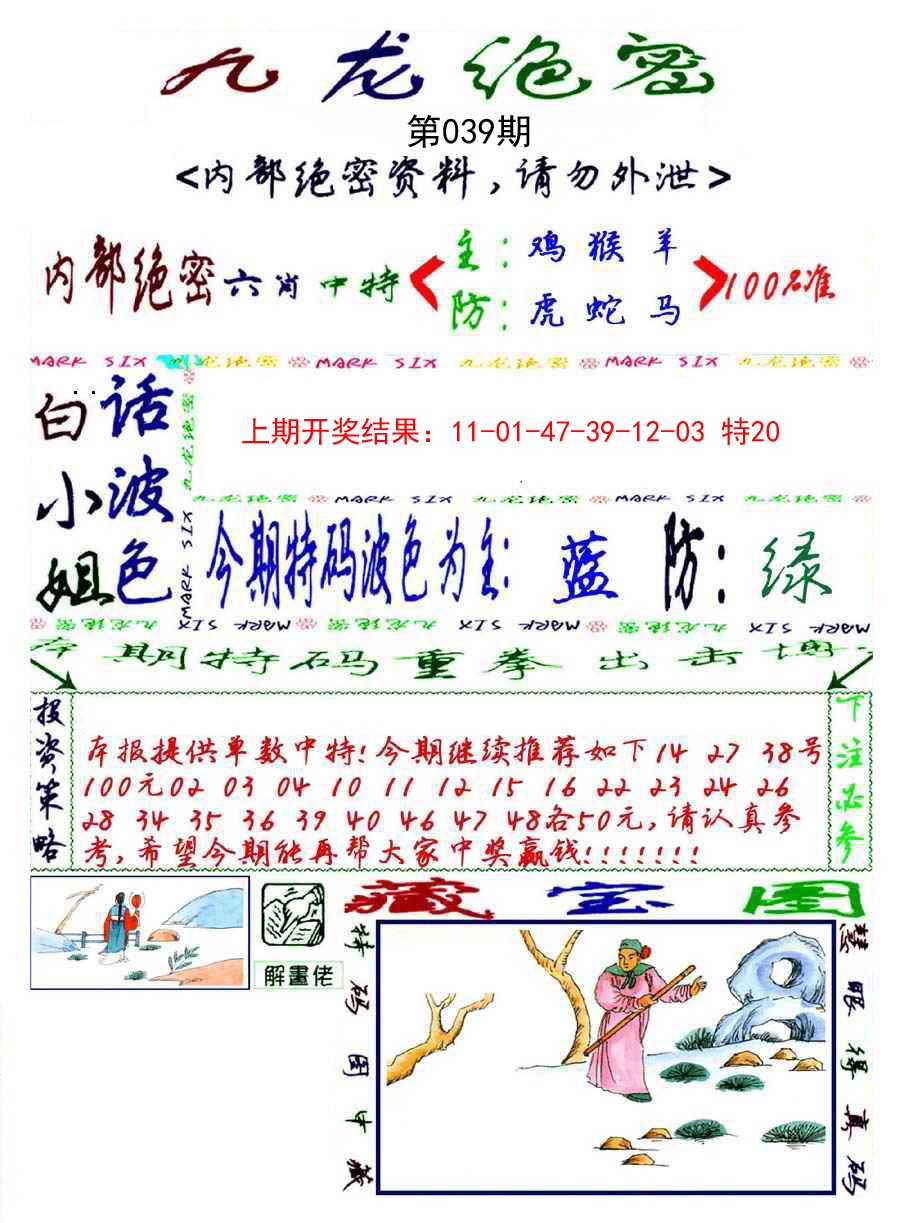 九龙绝密
第039期
<内部绝密资料,请勿外泄>
内部绝密六肖中特
主:鸡猴羊
防:虎蛇马
100%准
MARK SIX 九龙绝密 MARK SIX 九龙绝密 MARK SIX 九龙绝密
白小姐
话波色
九龙绝密 MARK SIX
上期开奖结果：11-01-47-39-12-03 特20
九龙绝密 MARK SIX 九龙绝密 MARK SIX 九龙绝密
今期特码波色为主:蓝 防:绿
MARK SIX 九龙绝密 MARK SIX 九龙绝密 MARK SIX 九龙绝密 MARK SIX
本期特码重拳出击博
投资策略
本报提供单数中特!今期继续推荐如下14 27 38号
100元02 03 04 10 11 12 15 16 22 23 24 26
28 34 35 36 39 40 46 47 48各50元,请认真参
考,希望今期能再帮大家中奖赢钱!!!!!!!
下注必参
解畫佬
藏宝图
特码图中藏
慧眼得真码